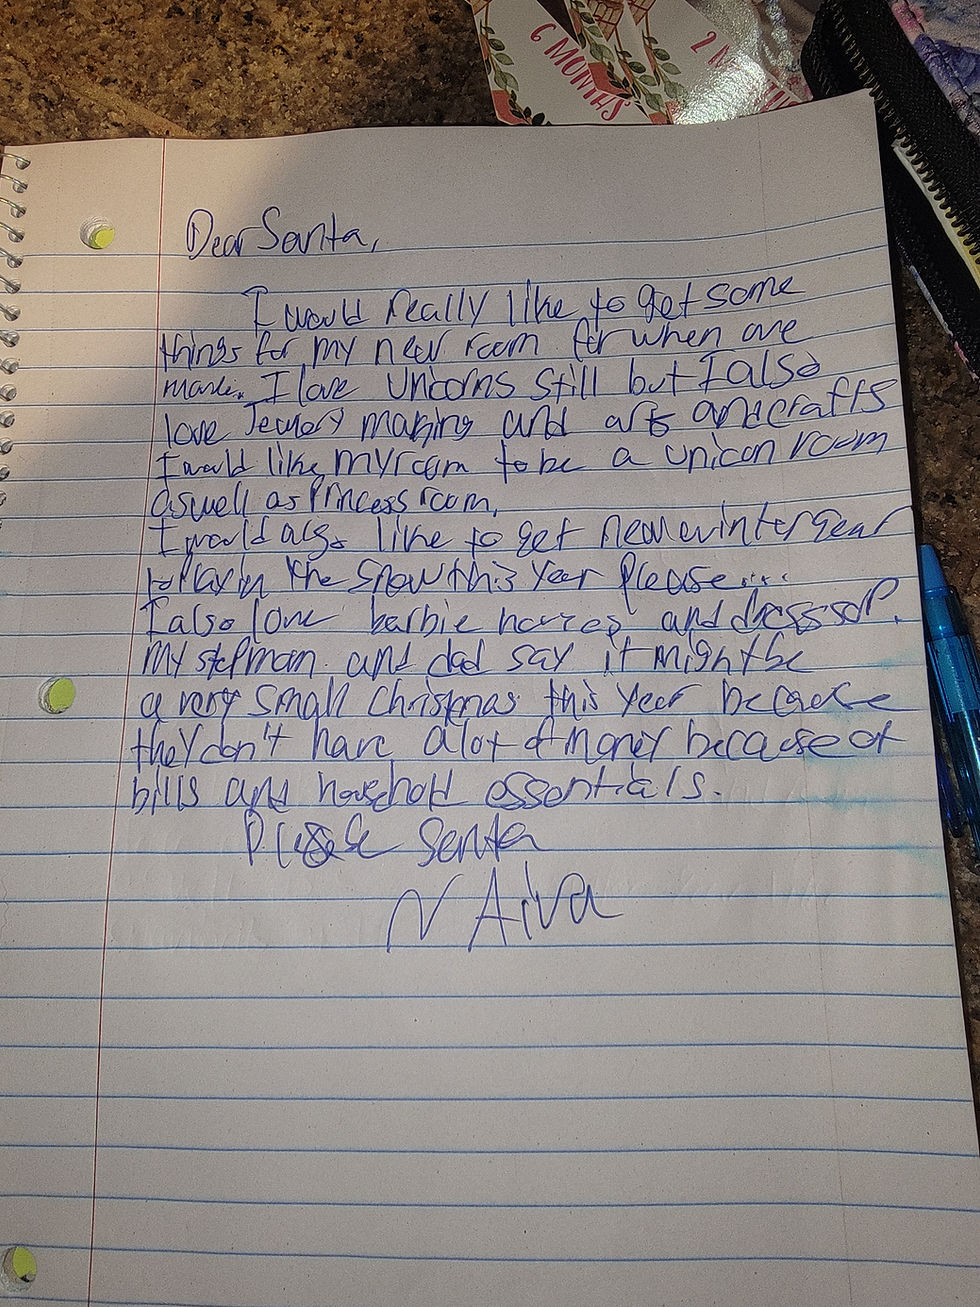 6 MONTHS
2 M
Dear Santa,
I would really like to get some
things for my new room for when are
I love unicorns still but I also
love Jewlery making and arts and crafts
I would like my room to be a unicon room
aswell as Princess room.
I would also like to get new winter gear
to Play in the snow this year Please....
I also love barbie and
My stepmom and dad say it might be
a very small christmas this year because
they don't have a lot of money because of
bills and household essentials.
Please Santa
~ Aiva